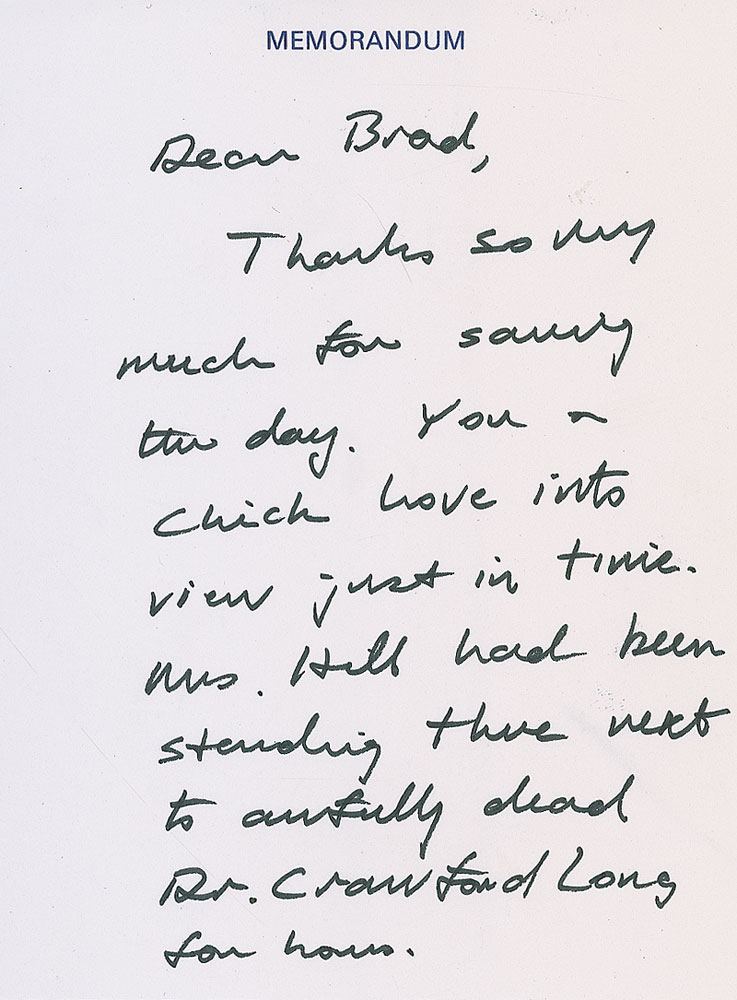 MEMORANDUM
Dear Brad,
Thanks so very
much for saving
the day. You ~
Chick hove into
view just in time.
Mrs. Hill had been
standing there next
to awfully dead
Dr. Crawford Long
for hours.